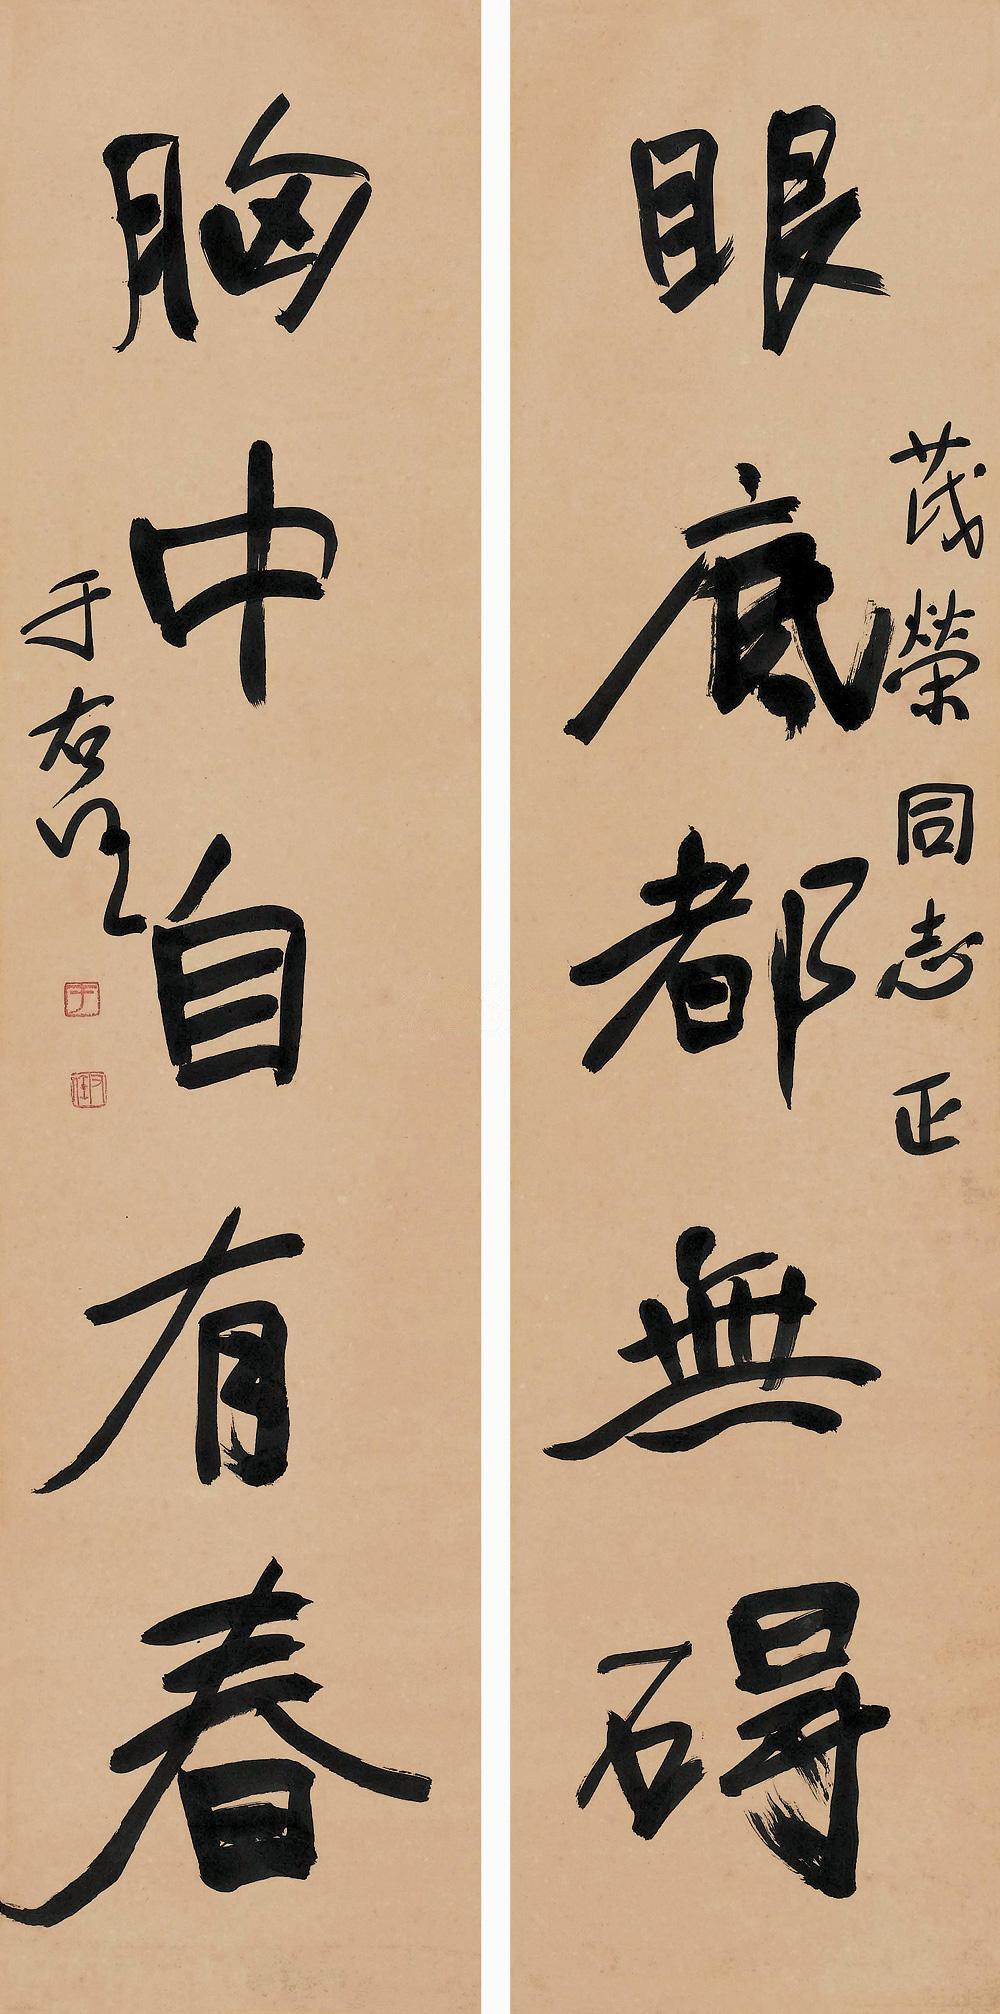 眼底都無碍
茂榮同志正
胸中自有春
于右任
于
右任